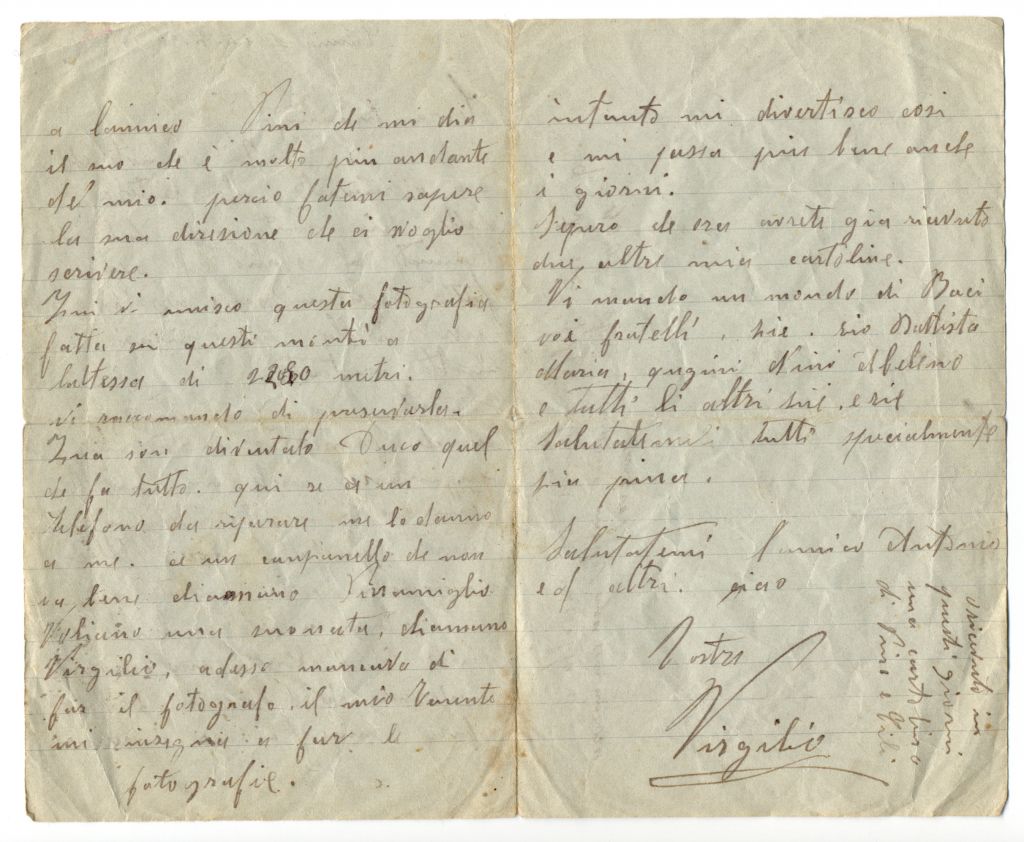 a lamico Pini che mi dia
il suo che è molto piu andante
del mio. percio fatemi sapere
la sua diresione che ci voglio
scrivere.
vi unisco questa fotografia
fatta su questi monti a
laltessa di 2280 metri.
vi raccomando di preservarla.
son diventato quel
che fa tutto. qui se ce un
telefono da riparare me lo danno
a me. ce un canpanello che non
va bene chiamano
una suonata, chiamano
Virgilio, adesso mancava di
far il fotografo. il mio Tenente
mi insegna a far le
fotografie.
intanto mi divertisco cosi
e mi passa piu bene anche
i giorni.
Spero che ora avrete gia ricevuto
due altre mia cartoline.
Vi mando un mondo di Baci
voi fratelli, sie. sio Battista
Maria, qugini
e tutti li altri sii. e sie
Salutatemi tutti specialmente
sia
Salutatemi lamico Antonio
ed altri. ciao
Vostro
Virgilio
o ricevuto in
questi giorni
una cartolina
di